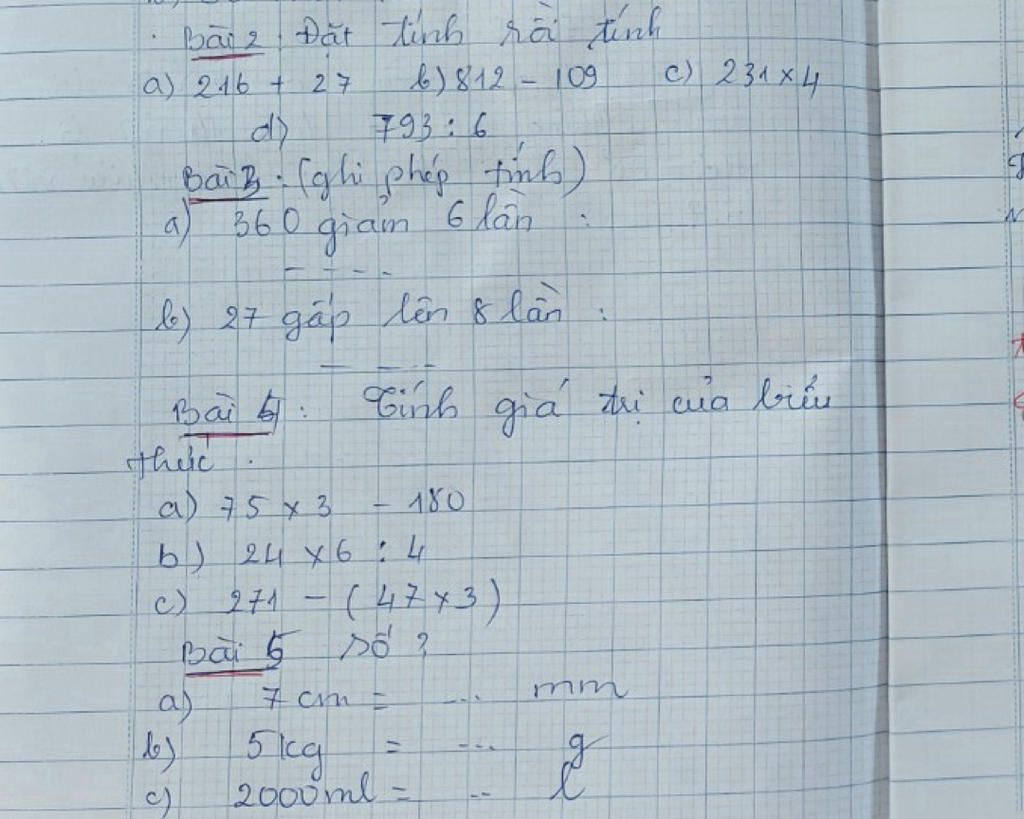 Bài 2 : Đặt tính rồi tính
a) 216 + 27 b) 812 - 109 c) 231 x 4
d) 793 : 6
Bài 3 : (ghi phép tính)
a) 360 giảm 6 lần :
- - - -
b) 27 gấp lên 8 lần :
- - - -
Bài 4 : Tính giá trị của biểu
thức .
a) 75 x 3 - 180
b) 24 x 6 : 4
c) 271 - ( 47 x 3 )
Bài 5 số ?
a) 7 cm = ... mm
b) 5 kg = ... g
c) 2000 ml = .. l